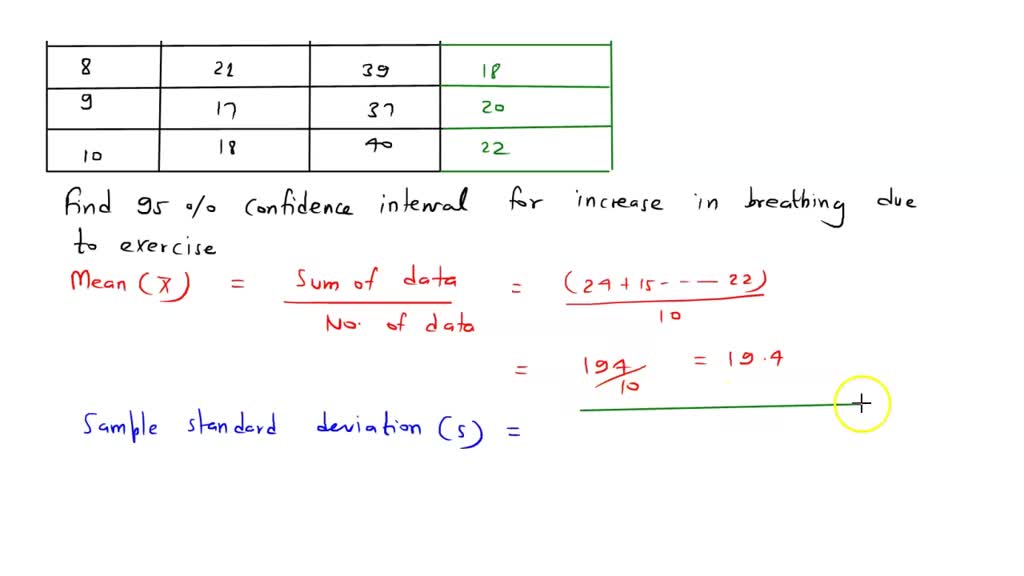 8 21 39 18
9 17 37 20
10 18 40 22
find 95 % confidence interval for increase in breathing due
to exercise
Mean (x̄) = Sum of data = (24 + 15 - - — 22)
No. of data 10
= 194/10 = 19.4
Sample standard deviation (s) =